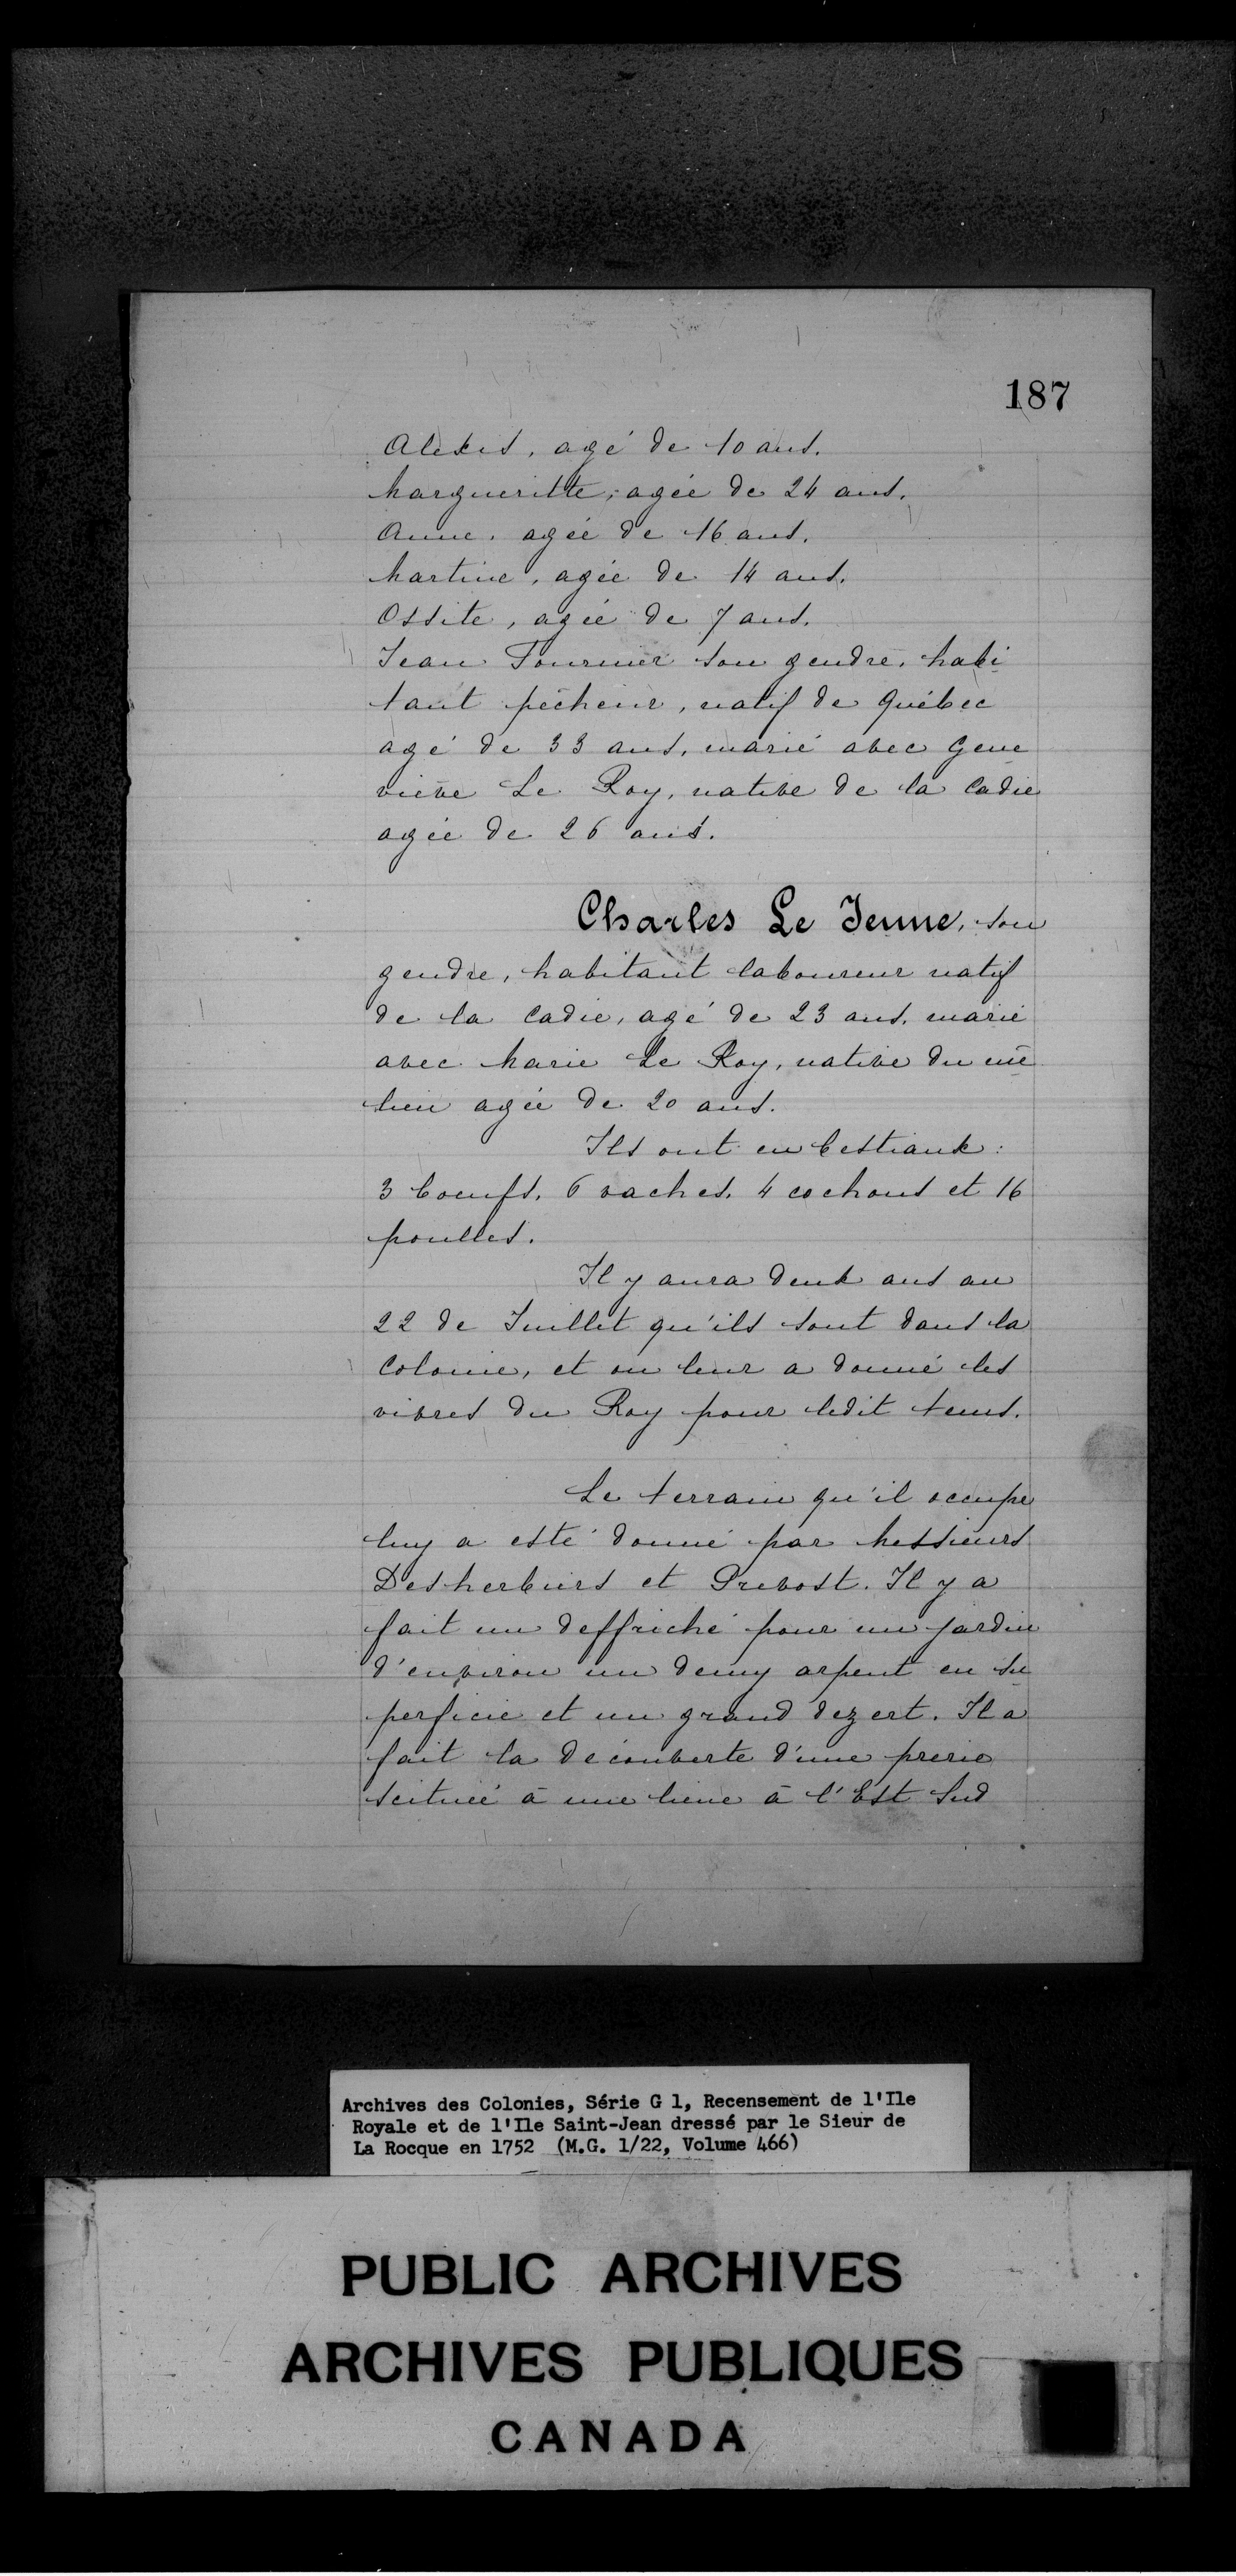 187
Alexis, agé de 10 ans.
Margueritte, agée de 24 ans.
Anne, agée de 16 ans.
Martine, agée de 14 ans.
Ossite, agée de 7 ans.
Jean Fournier son gendre, habi
tant pêcheur, natif de Québec
agé de 33 ans, marié avec Gene
viève Le Roy, native de la Cadie
agée de 26 ans.
Charles Le Jeune, son
gendre, habitant laboureur natif
de la Cadie, agé de 23 ans, marié
avec Marie Le Roy, native du mē
lieu agée de 20 ans.
Ils ont en bestiaux:
3 boeufs, 6 vaches, 4 cochons et 16
poulles.
Il y aura deux ans au
22 de Juillet qu'ils sont dans la
Colonie, et on leur a donné les
vivres du Roy pour ledit tems.
Le terrain qu'il occupe
luy a esté donné par Messieurs
Desherbiers et Prevost. Il y a
fait un deffriché pour un jardin
d'environ un demy arpent en su
perficie et un grand dezert. Il a
fait la découverte d'une prerie
scituée à une lieue à l'Est Sud
Archives des Colonies, Série G 1, Recensement de l'Ile
Royale et de l'Ile Saint-Jean dressé par le Sieur de
La Rocque en 1752 (M.G. 1/22, Volume 466)
PUBLIC ARCHIVES
ARCHIVES PUBLIQUES
CANADA